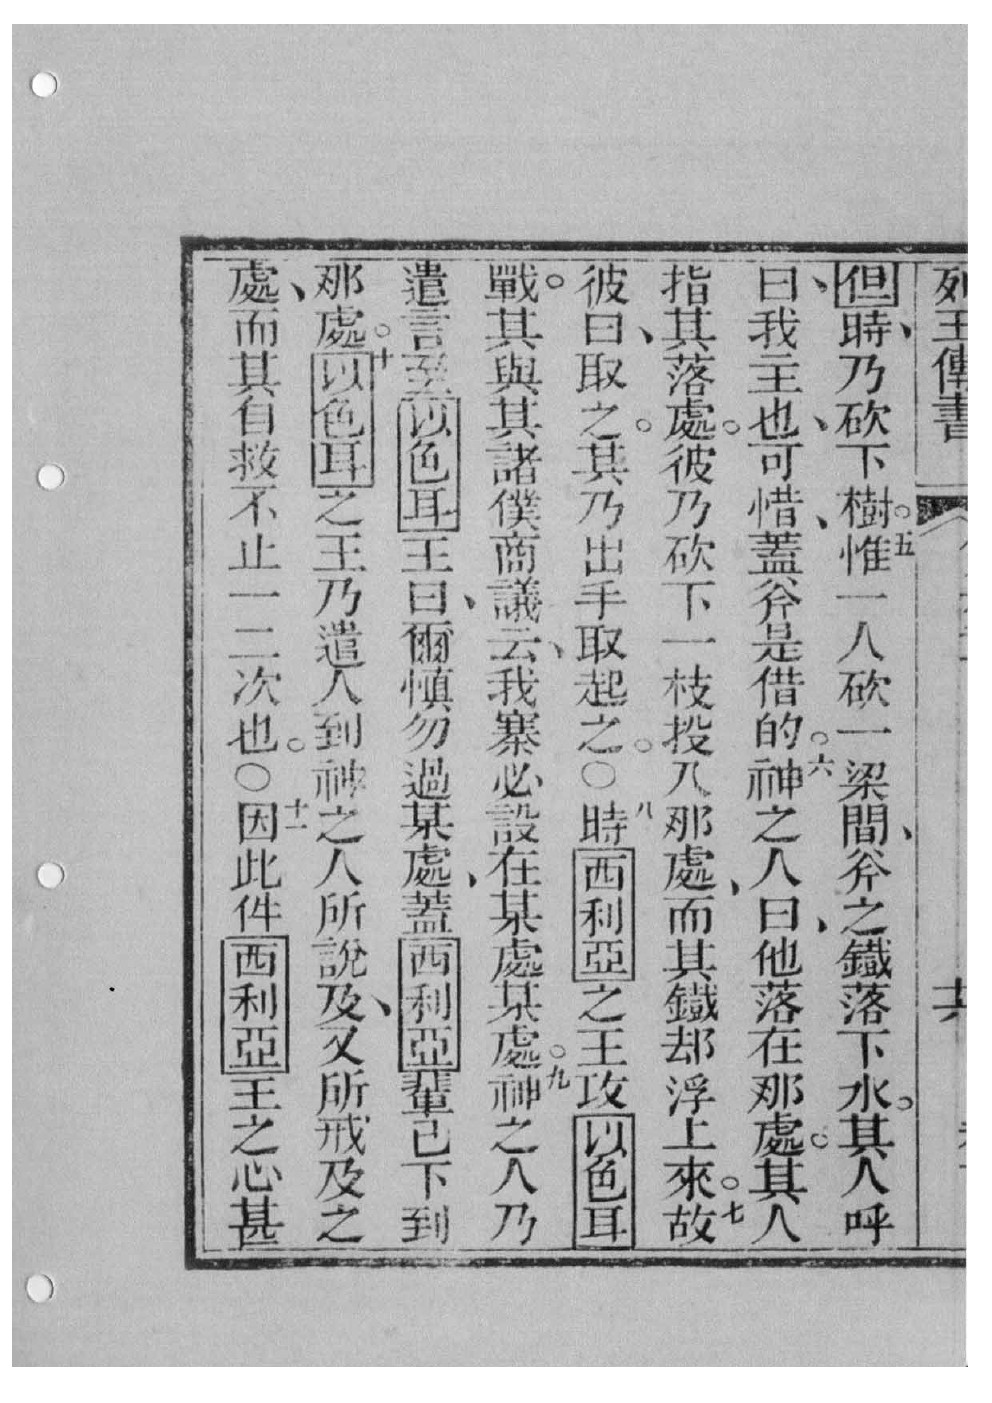 列王傳書
但時、乃砍下樹。五惟一人砍一梁間、斧之鐵落下水。其人呼
曰、我主也、可惜、蓋斧是借的。六神之人曰、他落在那處。其人
指其落處。彼乃砍下一枝投入那處、而其鐵却浮上來。七故
彼曰、取之。其乃出手取起之。○八時西利亞之王攻以色耳
戰。其與其諸僕商議云、我寨必設在某處某處。九神之人乃
遣言至以色耳王曰、爾慎勿過某處、蓋西利亞輩已下到
那處。十以色耳之王乃遣人到神之人所說及、又所戒及之
處、而其自救不止一二次也。○十一因此件西利亞王之心甚